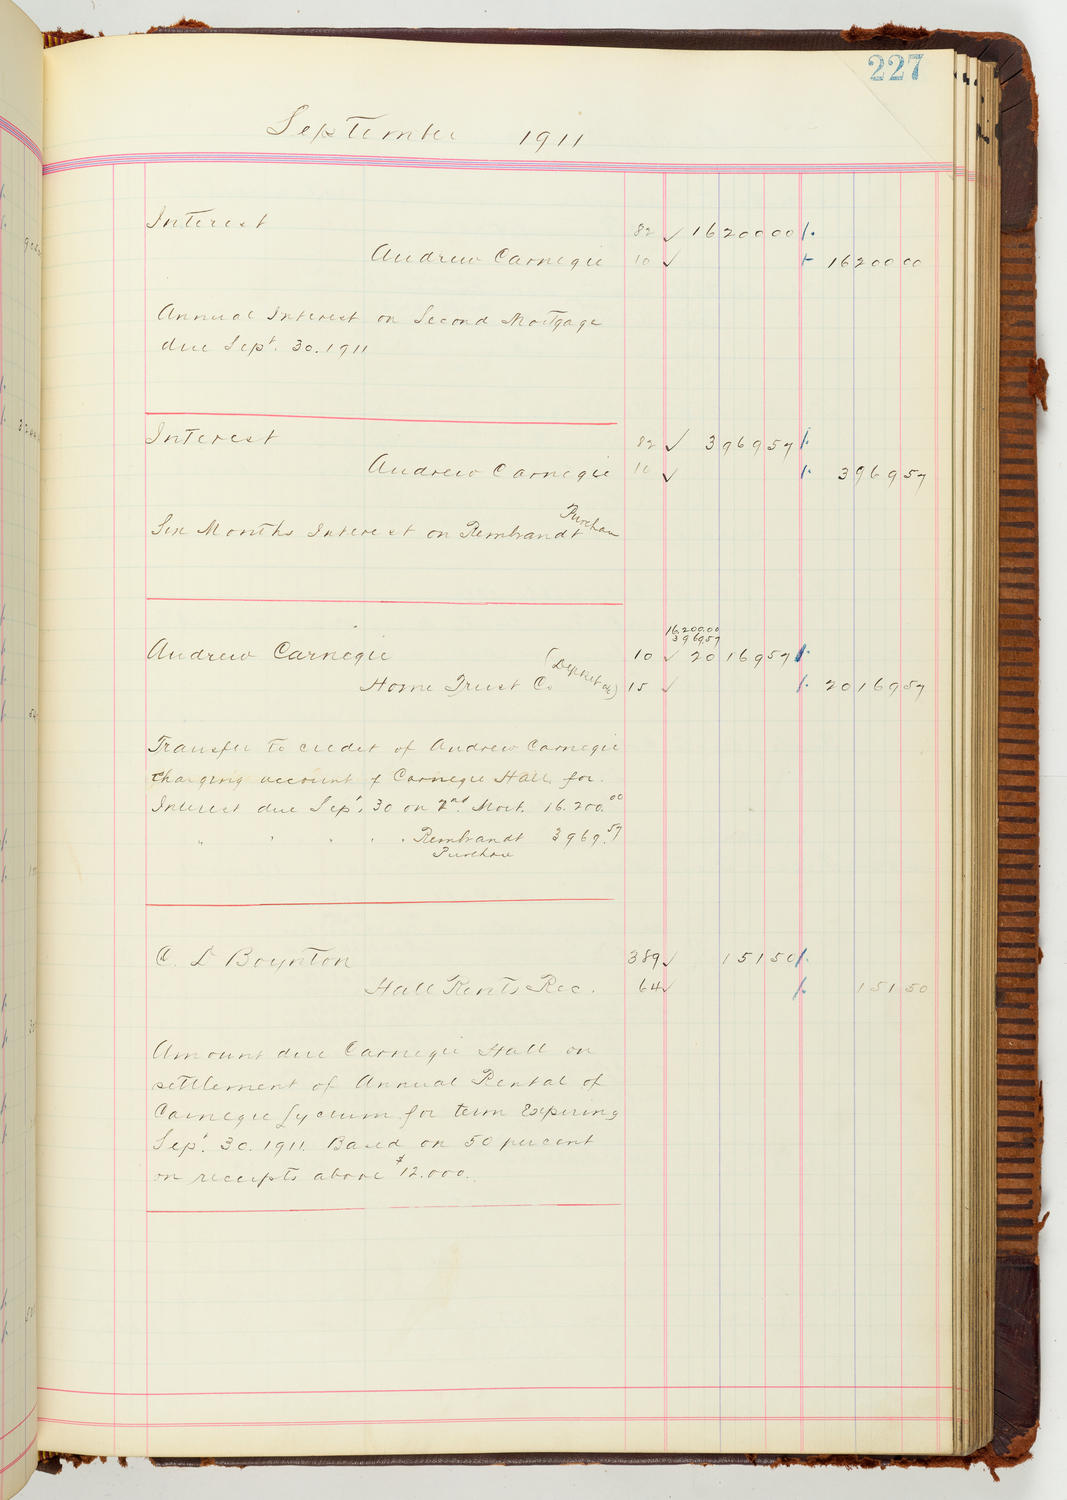 227
September 1911
Interest 82 ✓ 1620000
Andrew Carnegie 10 ✓ 1620000
Annual Interest on Second Mortgage
due Sept. 30. 1911
Interest 82 ✓ 396957
Andrew Carnegie 10 ✓ 396957
Purchase
Six Months Interest on Rembrandt
16.200.00
3969 57
Andrew Carnegie 10 ✓ 2016957
Home Trust Co (Deposit a/c) 15 ✓ 2016957
Transfer to credit of Andrew Carnegie
charging account of Carnegie Hall for
Interest due Sept. 30 on 2nd Mort. 16.200.00
" " " " " Rembrandt 3969.57
Purchase
C. L Boynton 389 ✓ 15150
Hall Rents Rec. 64 ✓ 15150
Amount due Carnegie Hall on
settlement of Annual Rental of
Carnegie Lyceum for term Expiring
Sept. 30. 1911. Based on 50 percent
on receipts above $12.000.